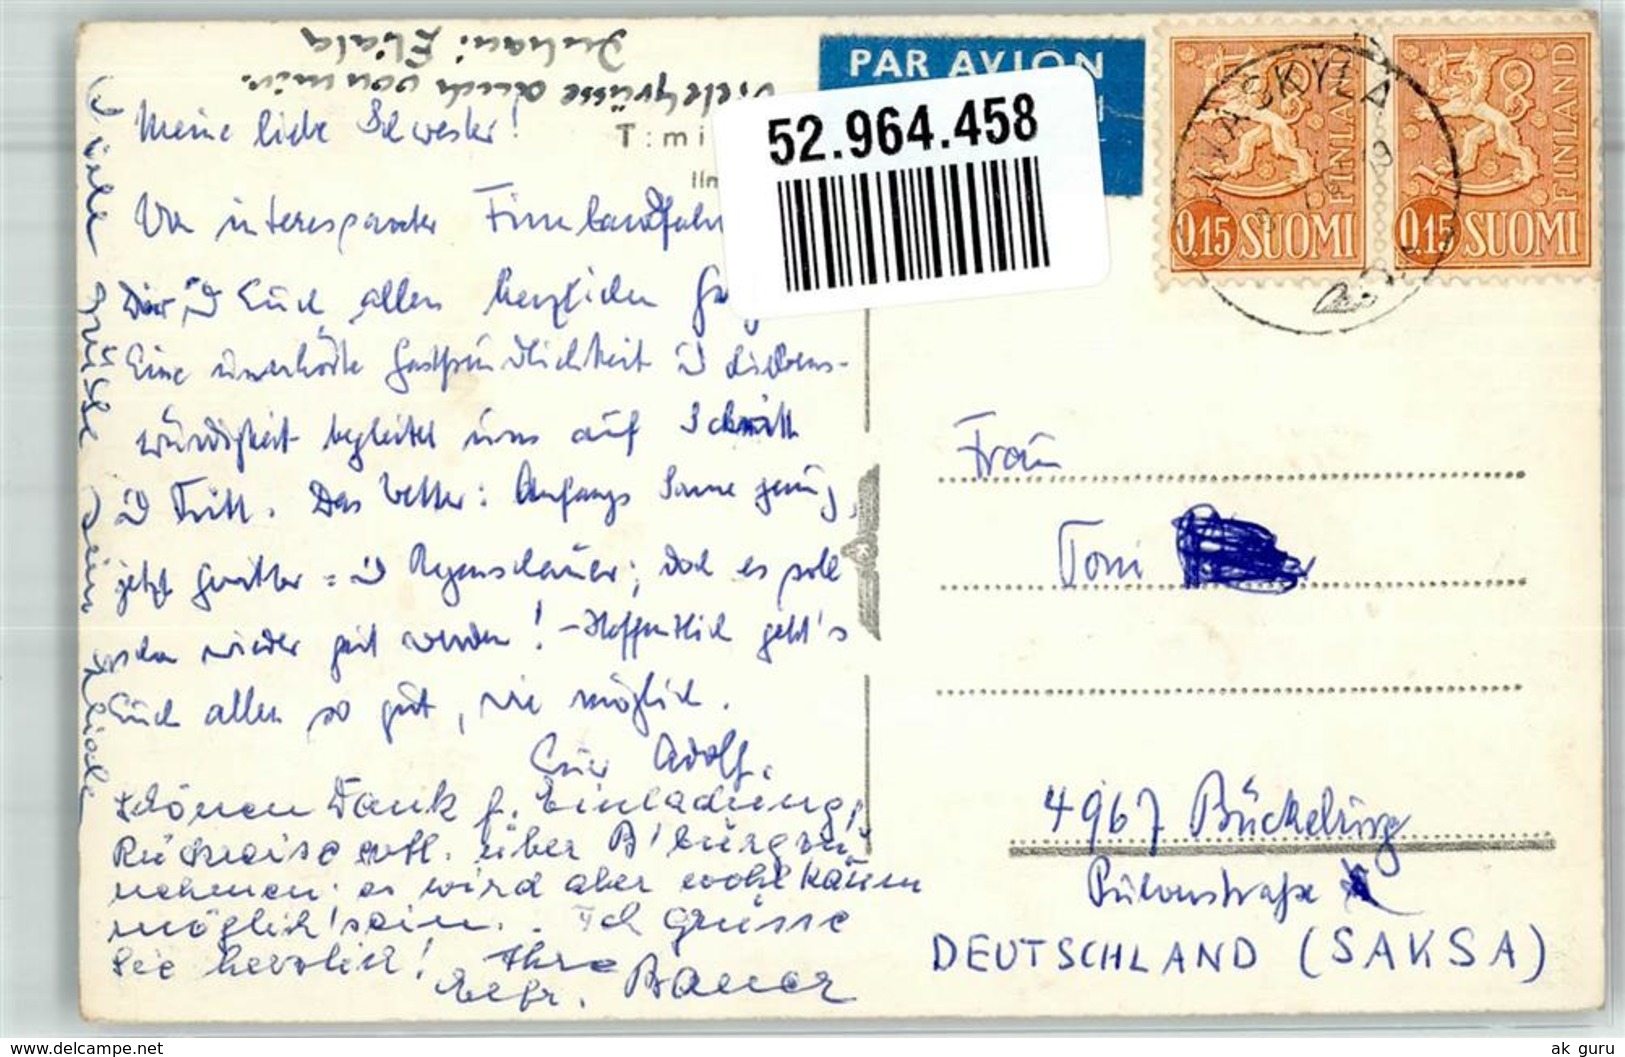 Viele Grüsse auch von mir.
Juhani Etiala
PAR AVION
52.964.458
T:mi
FINLAND
0,15 SUOMI
FINLAND
0,15 SUOMI
Meine liebe Schwester!
Von interessanter Finnlandfahrt
Dir u Euch allen herzlichen
Eine unerhörte Gastfreundlichkeit u Liebens-
würdigkeit begleitet uns auf Schritt
u Tritt. Das Wetter: Anfangs Sonne genug,
jetzt Gewitter= u Regenschauer; doch es soll
schon wieder gut werden! – Hoffentlich geht's
Euch allen so gut, wie möglich.
Euer Adolf.
Viele Grüsse Deine
Schönen Dank f. Einladung,
Rückreise evtl. über B'burg zu
nehmen; es wird aber wohl kaum
möglich sein. Ich grüsse
Sie herzlich! Ihre
Bauer
Frau
Toni
4967 Bückeburg
Bülowstraße
DEUTSCHLAND (SAKSA)
www.delcampe.net
ak guru